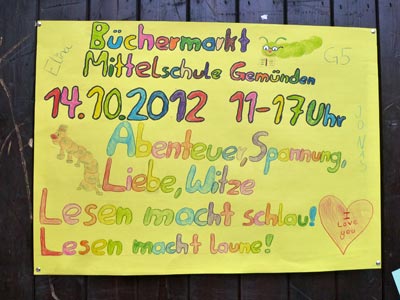 Elisa
Büchermarkt
G5
Mittelschule Gemünden
14.10.2012 11-17 Uhr
JONAS
Abenteuer, Spannung,
Liebe, Witze
Lesen macht schlau!
Lesen macht laune!
I
Love
you